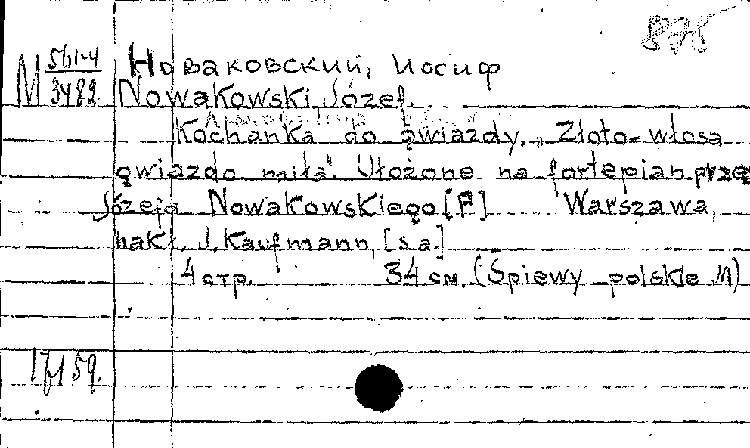 М 561-4 Новаковский, Иосиф
3482 Nowakowski Józef.
Kochanka do gwiazdy. „Złoto-włosa
gwiazdo miła". Ułożone na fortepian przez
Józefa Nowakowskiego [F] Warszawa,
nakł. J. Kaufmann, [s.a.]
4 стр. 34 см. (Śpiewy polskie
59.